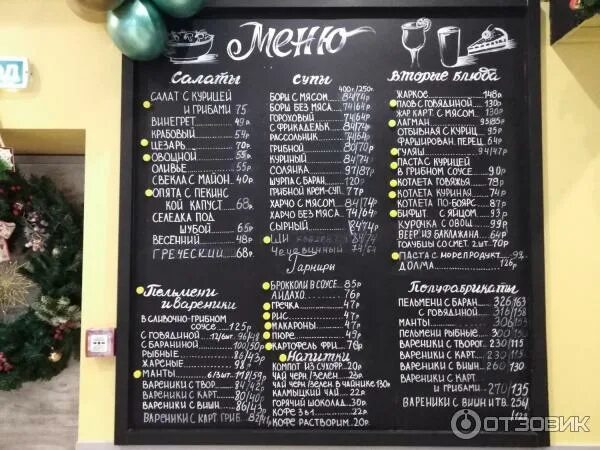 Меню
Салаты
САЛАТ С КУРИЦЕЙ
И ГРИБАМИ 75
ВИНЕГРЕТ 49р
КРАБОВЫЙ 54р
ЦЕЗАРЬ 70р
ОВОЩНОЙ 55р
ОЛИВЬЕ 55р
СВЕКЛА С МАЙОН. 40р
ОПЯТА С ПЕКИНС
КОЙ КАПУСТ 68р
СЕЛЕДКА ПОД
ШУБОЙ 65р
ВЕСЕННИЙ 48р
ГРЕЧЕСКИЙ 68р
Супы
400г/250г
БОРЩ С МЯСОМ 84/74р
БОРЩ БЕЗ МЯСА 74/64р
ГОРОХОВЫЙ 74/64р
С ФРИКАДЕЛЬК 84/74р
РАССОЛЬНИК 74/64р
ГРИБНОЙ 80/70р
КУРИНЫЙ 84/74р
СОЛЯНКА 97/87р
ШУРПА С БАРАН 120р
ГРИБНОЙ КРЕМ-СУП 77р
ХАРЧО С МЯСОМ 84/74р
ХАРЧО БЕЗ МЯСА 74/64р
СЫРНЫЙ 84/74р
ЩИ 84/74
Чечевичный 74/64
Вторые блюда
ЖАРКОЕ 148р
ПЛОВ С ГОВЯДИНОЙ 130р
ЖАР. КАРТ. С МЯСОМ 130р
ЛАГМАН 95/85р
ОТБИВНАЯ С КУРИЦ 95р
ФАРШИРОВАН. ПЕРЕЦ 64р
ГУЛЯШ 94/47р
ПАСТА С КУРИЦЕЙ
В ГРИБНОМ СОУСЕ 90р
КОТЛЕТА ГОВЯЖЬЯ 78р
КОТЛЕТА КУРИНАЯ 74р
КОТЛЕТА ПО-БОЯРС 87р
БИФШТ. С ЯЙЦОМ 93р
КУРОЧКА С ОВОЩ 99р
ВЕЕР ИЗ БАКЛАЖАНА 64р
ГОЛУБЦЫ СО СМЕТ. 2 шт. 70р
ПАСТА С МОРЕПРОДУКТ 98
ДОЛМА 126р
Гарниры
БРОККОЛИ В СОУСЕ 85р
ЛИДАХО 76р
ГРЕЧКА 47р
РИС 47р
МАКАРОНЫ 47р
ПЮРЕ 49р
КАРТОФЕЛЬ ФРИ 78р
Напитки
КОМПОТ ИЗ СУХОФР 20р
ЧАЙ ЧЕРН /ЗЕЛЕН 25р
ЧАЙ ЧЕРН/ ЗЕЛЕН В ЧАЙНИКЕ 130р
КАЛМЫЦКИЙ ЧАЙ 22р
ГОРЯЧИЙ ШОКОЛАД 30р
КОФЕ 3 в 1 22р
КОФЕ РАСТВОРИМ. 20р
Пельмени
и вареники
В СЛИВОЧНО-ГРИБНОМ
СОУСЕ 125р
С ГОВЯДИНОЙ 96/48
С БАРАНИНОЙ 100/50р
РЫБНЫЕ 86/43р
ЖАРЕНЫЕ 98р
МАНТЫ 118/59р
ВАРЕНИКИ С ТВОР 84/42р
ВАРЕНИКИ С КАРТ 80/40р
ВАРЕНИКИ С ВИШН 86/43р
ВАРЕНИКИ С КАРТ ГРИБ 82/41р
Полуфабрикаты
ПЕЛЬМЕНИ С БАРАН 326/163
С ГОВЯДИНОЙ 316/158
МАНТЫ 306/153
ПЕЛЬМЕНИ РЫБНЫЕ 300
ВАРЕНИКИ С ТВОРОГ 230 115
ВАРЕНИКИ С КАРТ 230 115
ВАРЕНИКИ С ВИШН 260 130
ВАРЕНИКИ С КАРТ
И ГРИБАМИ 270/135
ВАРЕНИКИ С ВИШН И ТВ. 256/
ОТЗОВИК